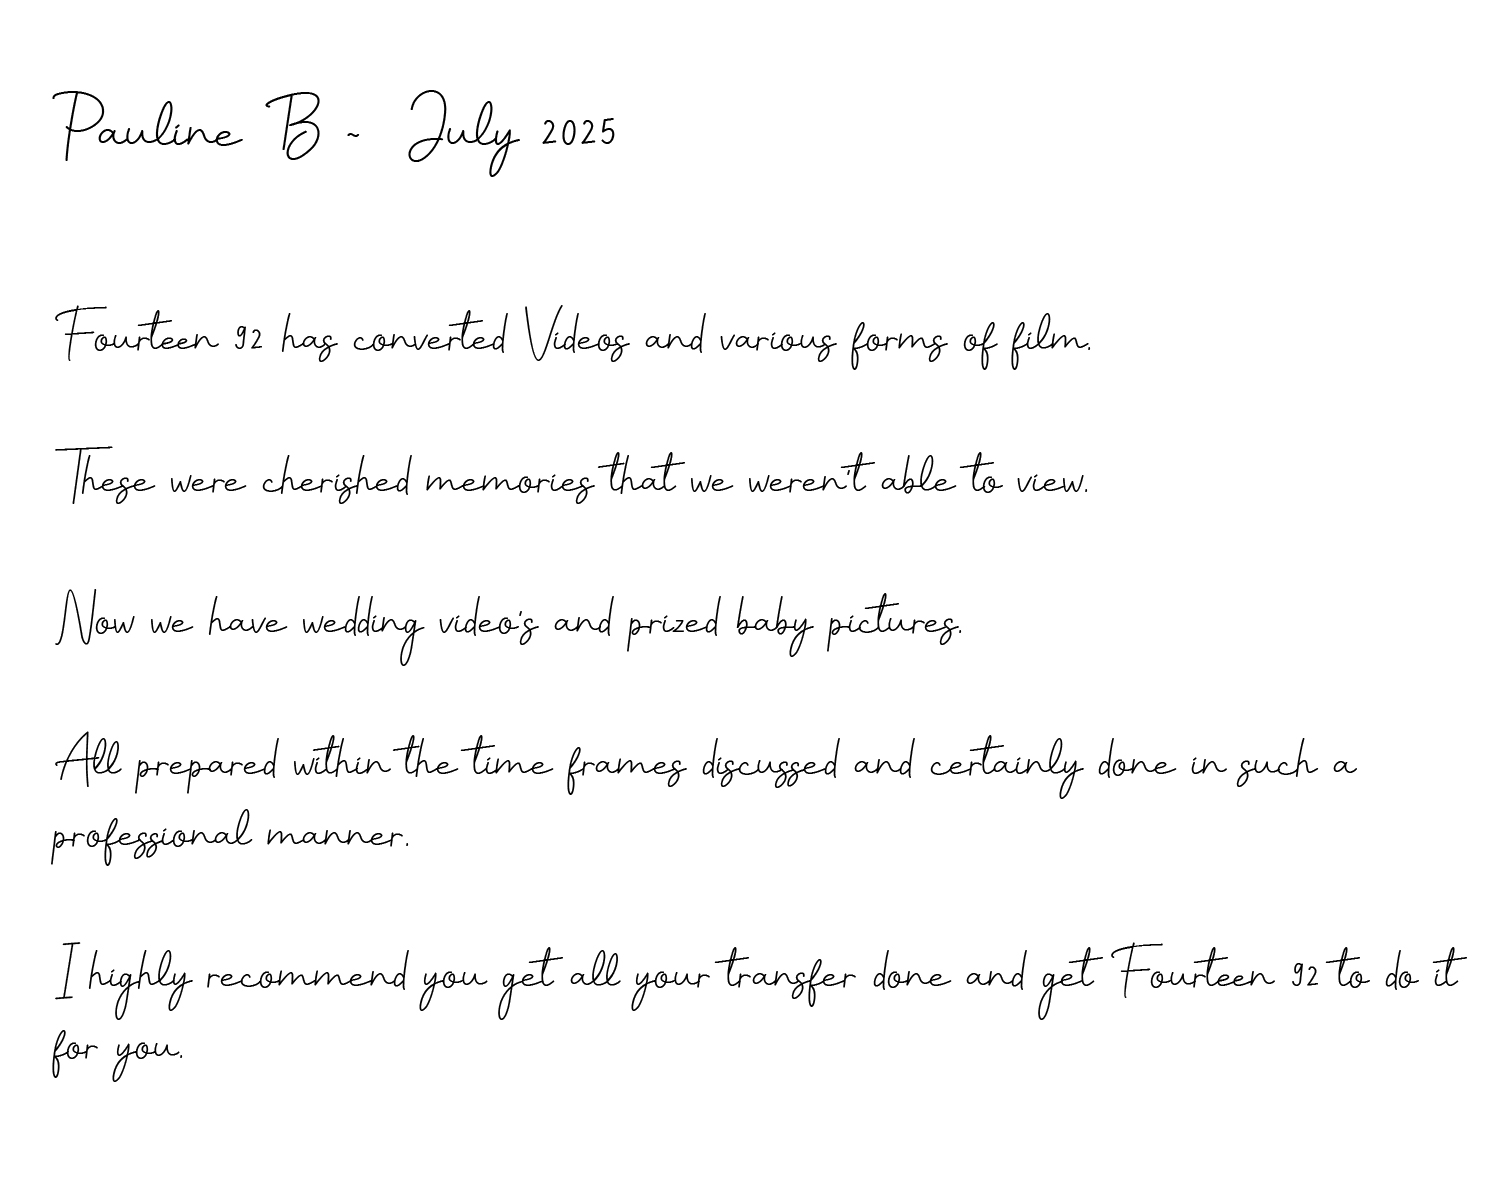 Pauline B ~ July 2025
Fourteen 92 has converted Videos and various forms of film.
These were cherished memories that we weren't able to view.
Now we have wedding video's and prized baby pictures.
All prepared within the time frames discussed and certainly done in such a
professional manner.
I highly recommend you get all your transfer done and get Fourteen 92 to do it
for you.